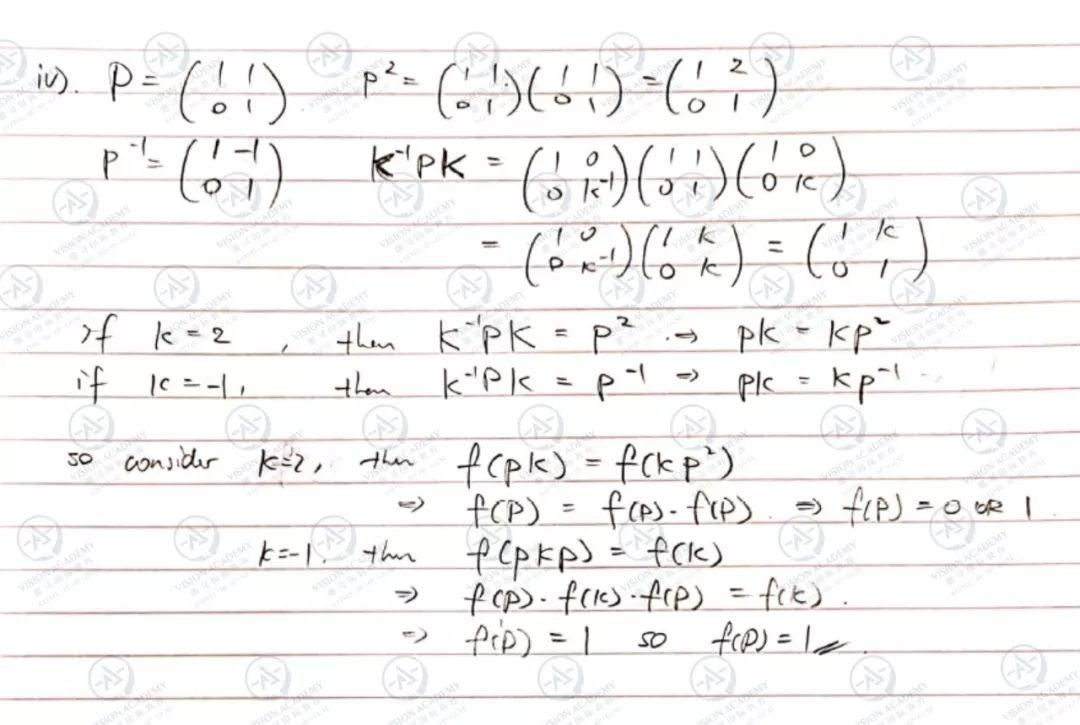 iv). P = (1 1; 0 1) P² = (1 1; 0 1)(1 1; 0 1) = (1 2; 0 1)
P⁻¹ = (1 -1; 0 1) K⁻¹PK = (1 0; 0 k⁻¹)(1 1; 0 1)(1 0; 0 k)
= (1 0; 0 k⁻¹)(1 k; 0 k) = (1 k; 0 1)
if k = 2, then K⁻¹PK = P² ⇒ PK = KP²
if k = -1, then K⁻¹PK = P⁻¹ ⇒ PK = KP⁻¹
so consider k=2, then f(PK) = f(KP²)
⇒ f(P) = f(P)·f(P) ⇒ f(P) = 0 OR 1
k=-1. then f(PKP) = f(K)
⇒ f(P)·f(K)·f(P) = f(K).
⇒ f²(P) = 1 so f(P) = 1
VISION ACADEMY